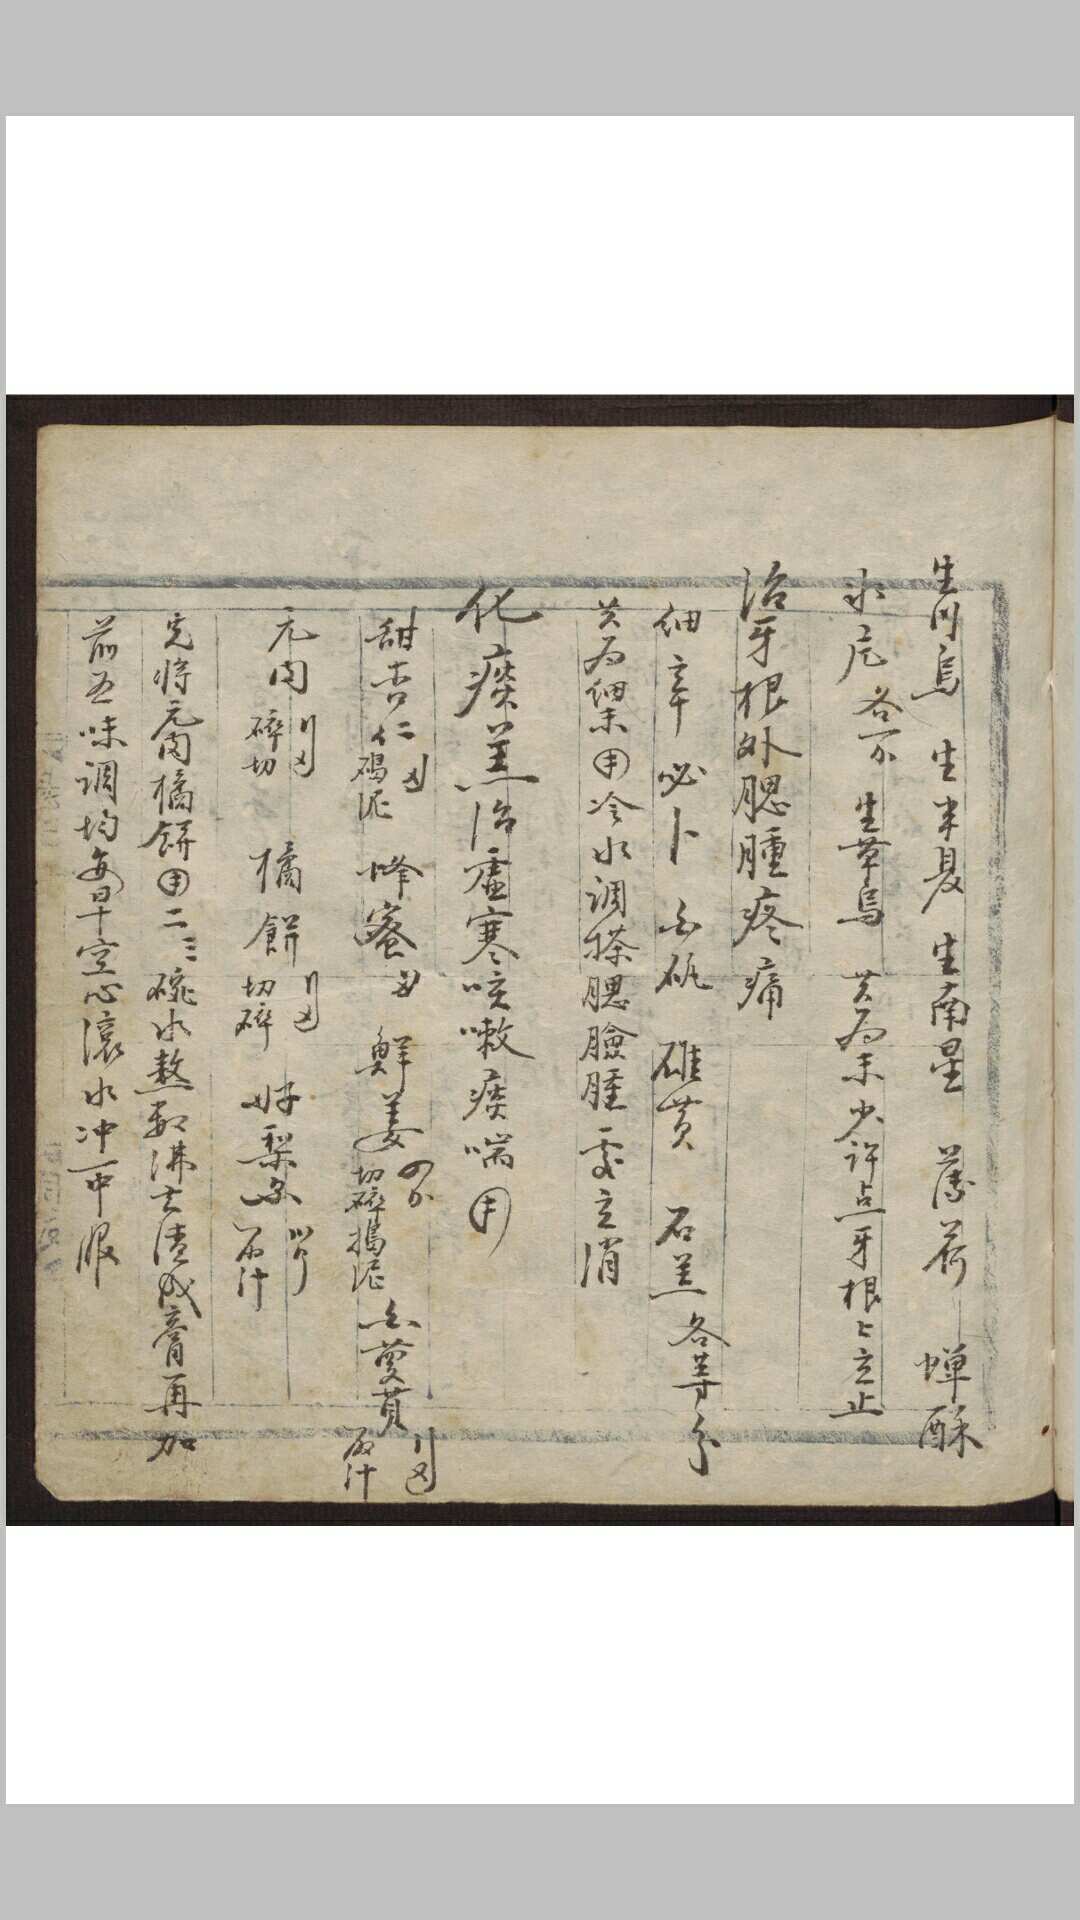 生川烏 生半夏 生南星 薄荷 蟬酥
水 各 生草烏 共為末少許点牙根上立止
治牙根外腮腫疼痛
細辛 必卜 白矾 硃黄 石羔 各等分
共為細末用冷水調搽腮臉腫處立消
化痰羔治虛寒咳嗽痰喘用
甜杏仁 搗泥 蜂蜜 鮮姜 切碎搗泥 白蔓菁 汁
元肉 碎切 橘餅 切碎 好梨 汁
先將元肉橘餅用二三碗水熬數沸去渣成膏再加
前五味調均每早空心滾水冲一中服